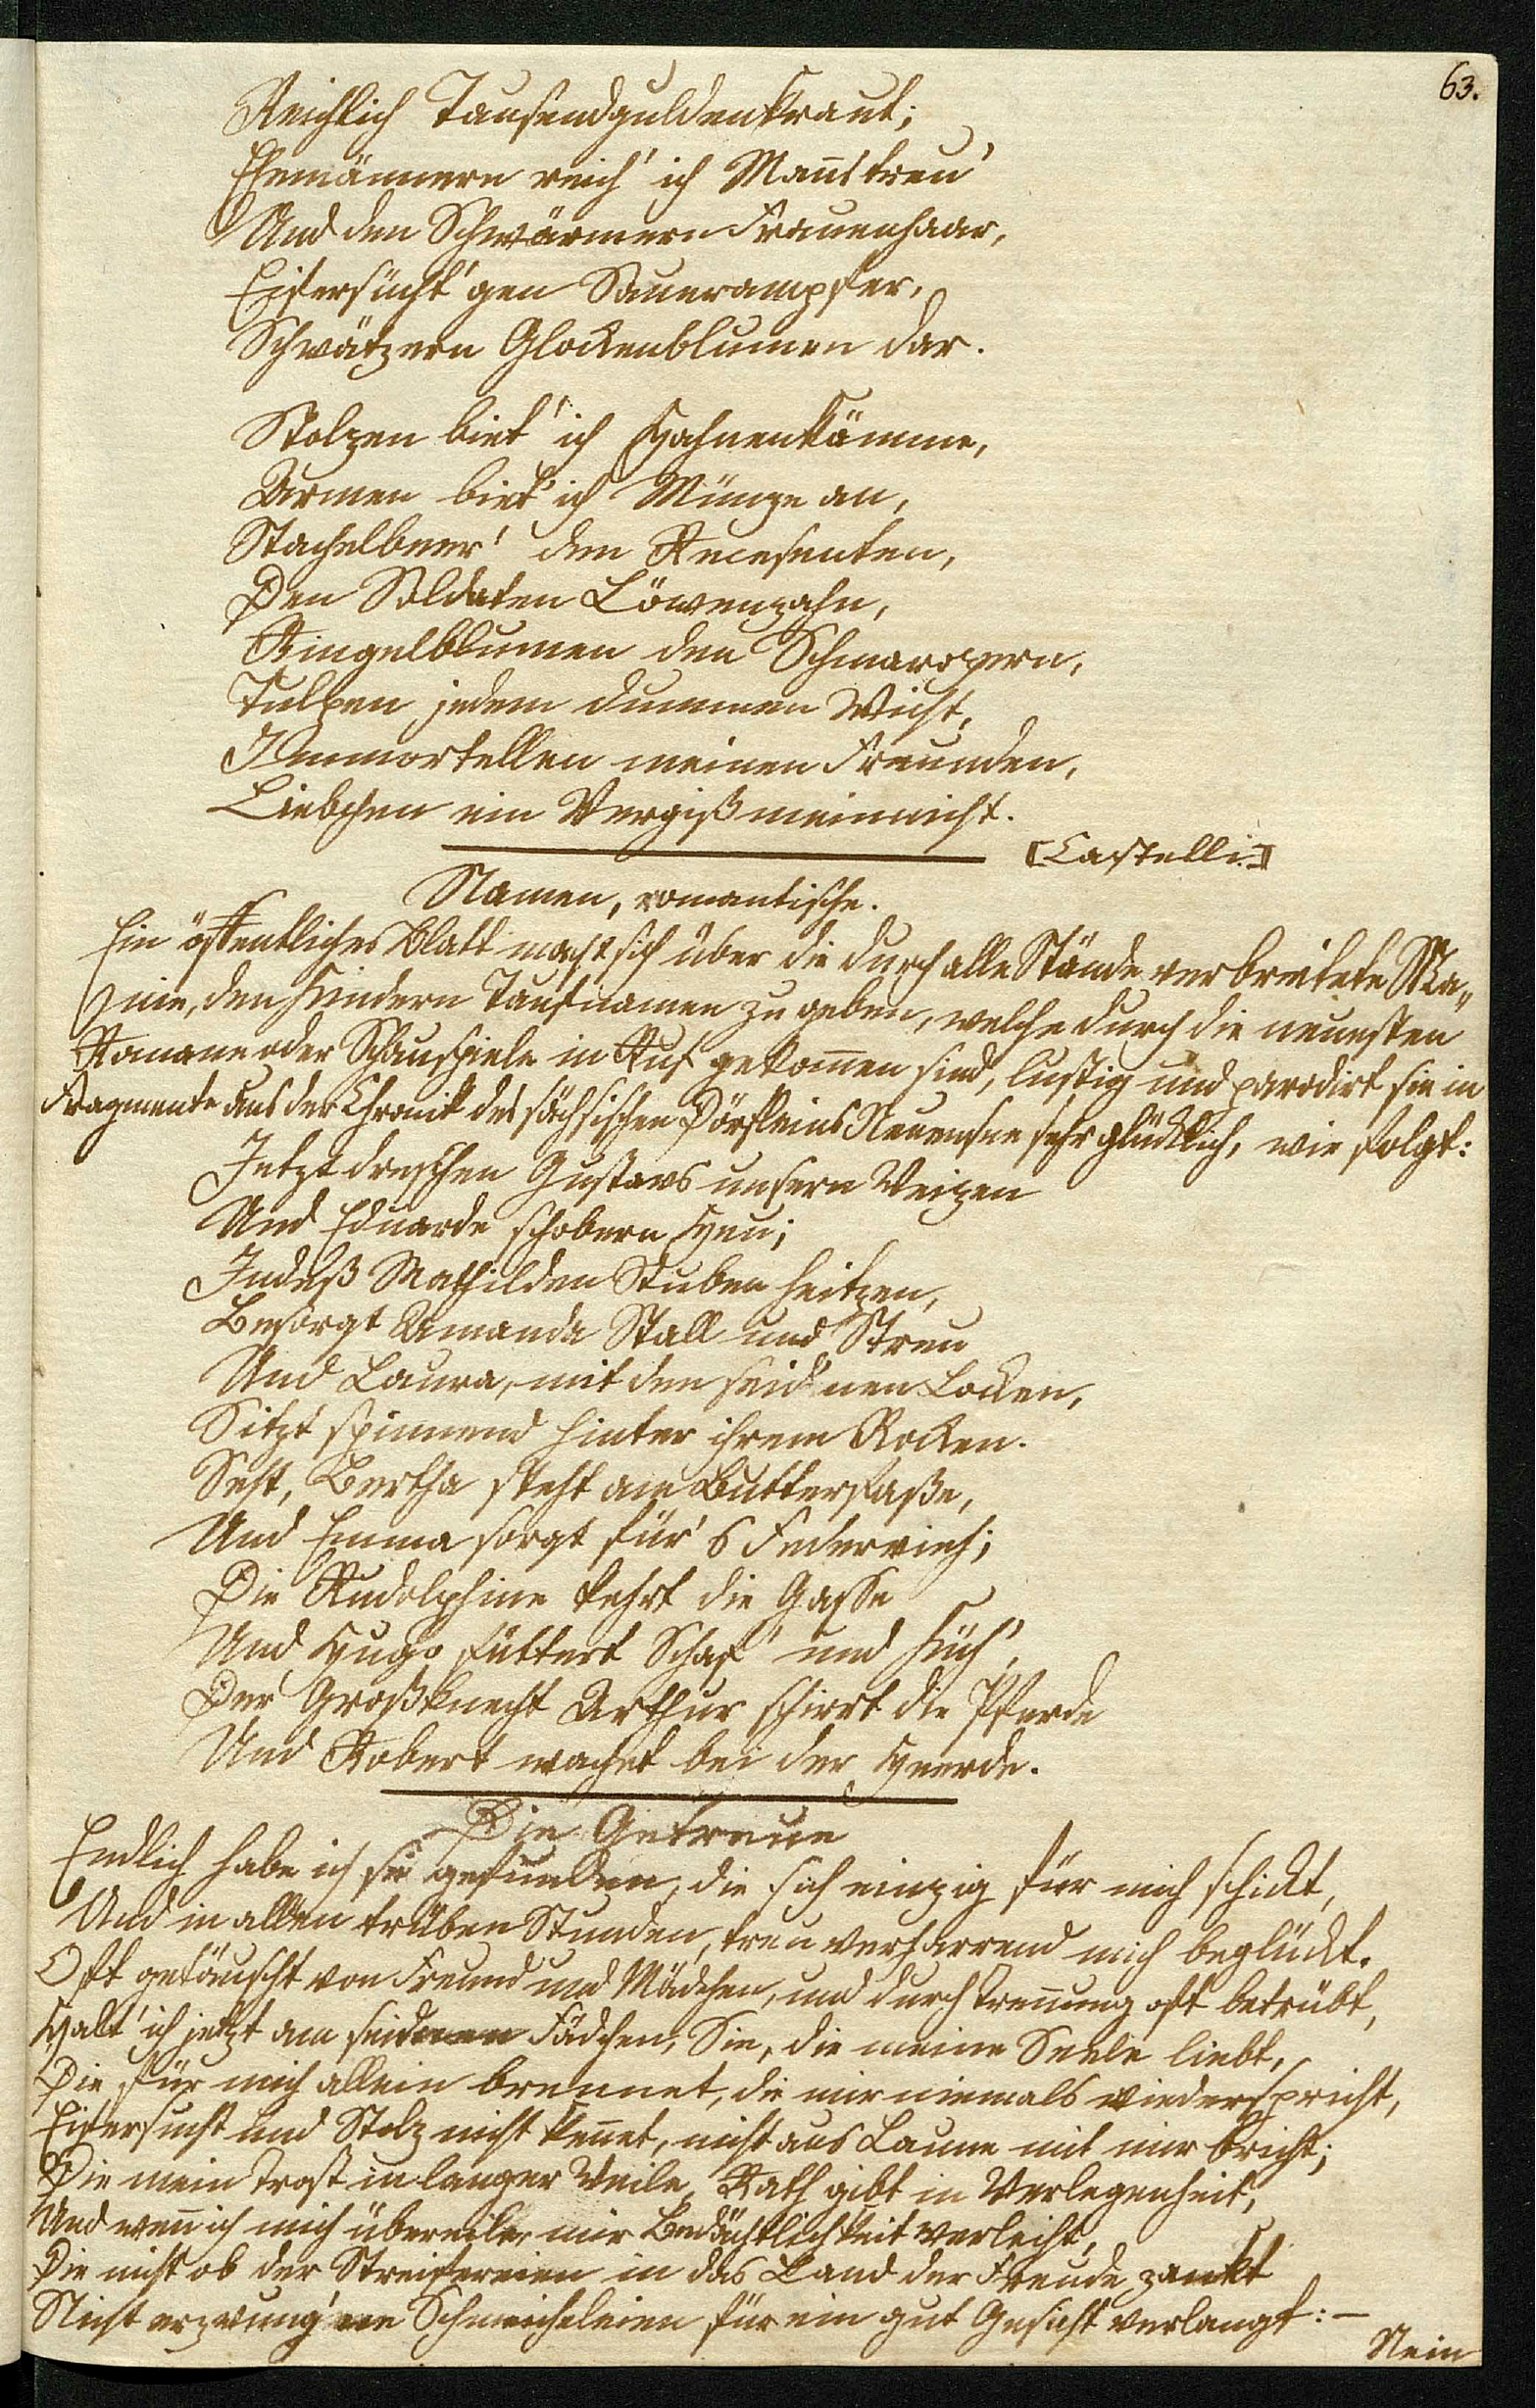 63.
Reichlich Tausendguldenkraut;
Ehemännern reich' ich Mañstreu'
Und den Schwärmern Frauenhaar,
Eifersücht'gen Sauerampfer,
Schwätzern Glockenblumen dar.
Stolzen biet' ich Hahnenkämme,
Armen biet' ich Münze an,
Stachelbeer' dem Recesenten,
Den Soldaten Löwenzahn,
Ringelblumen den Schmarozern,
Tulpen jedem dummen Wicht,
Immortellen meinen Freunden,
Liebchen ein Vergißmeinnicht.
[Castelli.]
Namen, romantische.
Ein öffentliches Blatt macht sich über die durch alle Stände verbreitete Ma„
nie, den Kindern Taufnamen zu geben, welche durch die neuesten
Romane oder Schauspiele in Ruf gekom̄en sind, lustig und parodirt sie in
Fragmente aus der Chronik des sächsischen Dörfleins Neuensee sehr glücklich, wie folgt:
Jetzt dreschen Gustavs unsern Weizen
Und Eduarde schobern Heu;
Indeß Mathilden Stuben heitzen,
Besorgt Amanda Stall und Streu
Und Laura, mit den seid'nen Locken,
Sitzt spinnend hinter ihrem Rocken.
Seht, Bertha steht am Butterfaße,
Und Emma sorgt für's Federvieh;
Die Rudolphine kehrt die Gasse
Und Hugo füttert Schaf' und Küh',
Der Großknecht Arthur schirrt die Pferde
Und Robert wachet bei der Heerde.
Die Getreue
Endlich habe ich sie gefunden, die sich einzig für mich schickt,
Und in allen trüben Stunden, treu verharrend mich beglückt.
Oft getäuscht von Freund und Mädchen, und durch Treñung oft betrübt,
Halt' ich jetzt am seidnen Fädchen, Sie, die meine Seele liebt,
Die für mich allein brennet, die mir niemals wiederspricht,
Eifersucht und Stolz nicht keñet, nicht aus Laune mit mir bricht;
Die mein Trost in langer Weile, Rath gibt in Verlegenheit,
Und weñ ich mich übereile, mir Bedächtlichkeit verleiht,
Die nicht ob der Streifereien in das Land der Freude zankt
Nicht erzwung'ne Schmeicheleien für ein gut Gesicht verlangt: –
Nein